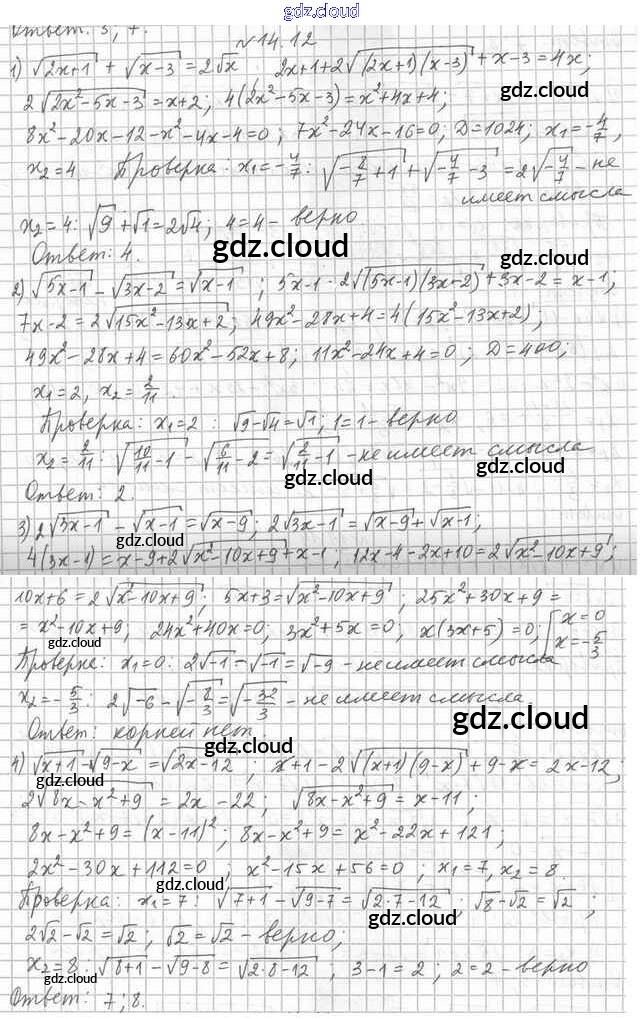 gdz.cloud
Ответ: 3; 7.
№14.12
1) √(2x+1) + √(x-3) = 2√x 2x+1+2√((2x+1)(x-3)) + x-3 = 4x;
2√(2x²-5x-3) = x+2; 4(2x²-5x-3) = x²+4x+4;
8x²-20x-12-x²-4x-4=0; 7x²-24x-16=0; D=1024; x₁=-4/7,
x₂=4 Проверка: x₁=-4/7: √(-8/7+1) + √(-4/7-3) = 2√(-4/7) - не
имеет смысла
x₂=4: √9+√1=2√4; 4=4 - верно
Ответ: 4.
gdz.cloud
2) √(5x-1) - √(3x-2) = √(x-1); 5x-1-2√((5x-1)(3x-2)) + 3x-2 = x-1;
7x-2=2√(15x²-13x+2); 49x²-28x+4=4(15x²-13x+2);
49x²-28x+4=60x²-52x+8; 11x²-24x+4=0; D=400;
x₁=2, x₂=2/11.
Проверка: x₁=2: √9-√4=√1; 1=1 - верно
x₂=2/11: √(10/11-1) - √(6/11-2) = √(2/11-1) - не имеет смысла
gdz.cloud
Ответ: 2.
3) 2√(3x-1) - √(x-1) = √(x-9); 2√(3x-1) = √(x-9) + √(x-1);
gdz.cloud
4(3x-1) = x-9+2√(x²-10x+9)+x-1; 12x-4-2x+10=2√(x²-10x+9);
10x+6=2√(x²-10x+9); 5x+3=√(x²-10x+9); 25x²+30x+9=
= x²-10x+9; 24x²+40x=0; 3x²+5x=0; x(3x+5)=0; [x=0 x=-5/3
gdz.cloud
Проверка: x₁=0: 2√-1 - √-1 = √-9 - не имеет смысла
x₂=-5/3: 2√-6 - √(-8/3) = √(-32/3) - не имеет смысла.
gdz.cloud
Ответ: корней нет.
4) √(x+1) - √(9-x) = √(2x-12); x+1-2√((x+1)(9-x)) + 9-x = 2x-12;
gdz.cloud
2√(8x-x²+9) = 2x-22; √(8x-x²+9) = x-11;
8x-x²+9=(x-11)²; 8x-x²+9=x²-22x+121;
2x²-30x+112=0; x²-15x+56=0; x₁=7, x₂=8.
gdz.cloud
Проверка: x₁=7: √(7+1) - √(9-7) = √(2·7-12); √8-√2=√2;
gdz.cloud
2√2-√2=√2; √2=√2 - верно;
x₂=8: √(8+1) - √(9-8) = √(2·8-12); 3-1=2; 2=2 - верно
gdz.cloud
Ответ: 7; 8.